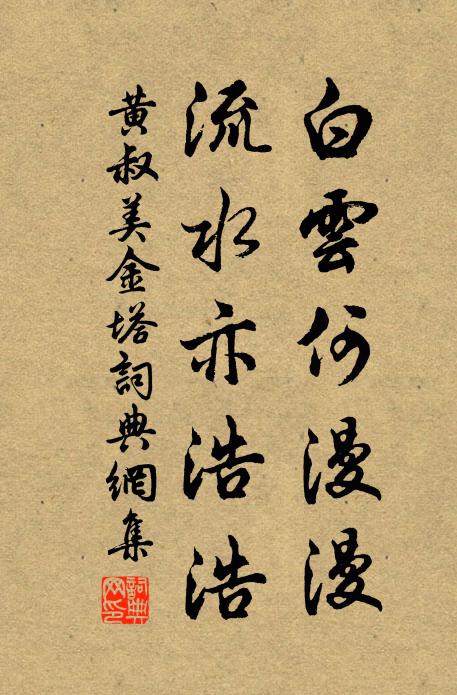 白雲何漫漫
流水亦浩浩
黄叔美金塔詞典網集
詞典網印